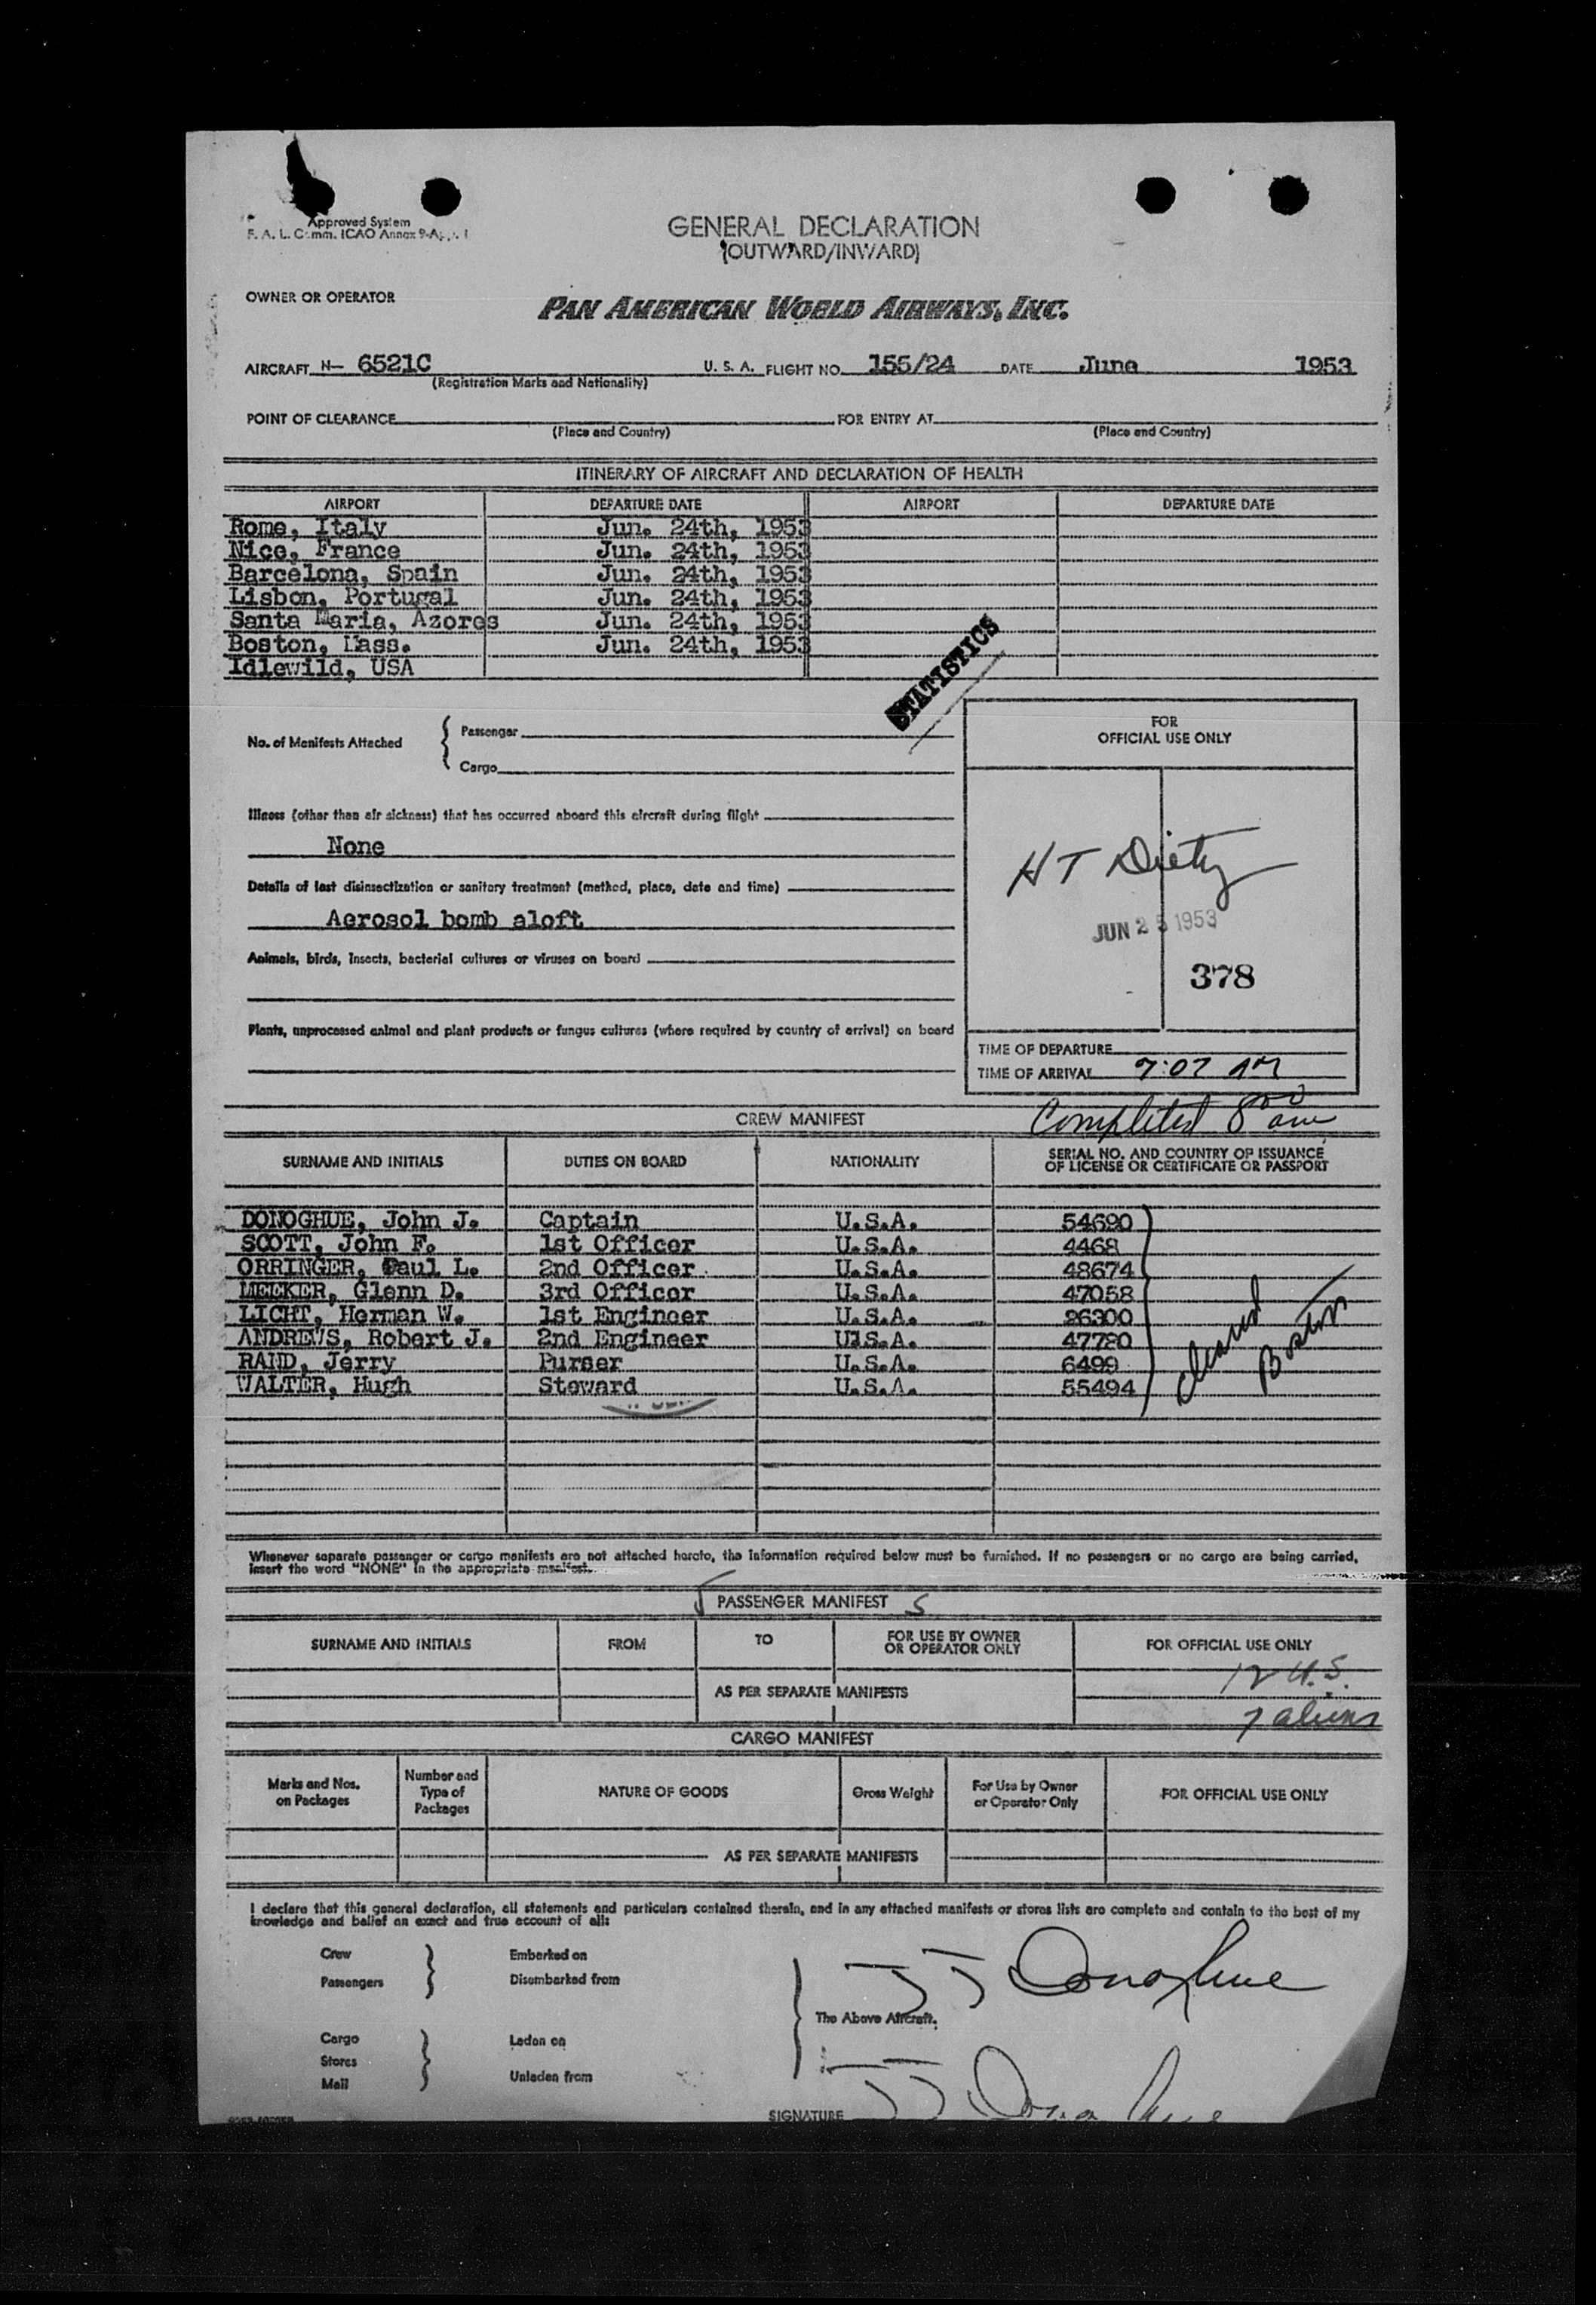 Approved System
F. A. L. Comm. ICAO Annex 9-App. 1
GENERAL DECLARATION
(OUTWARD/INWARD)
OWNER OR OPERATOR
PAN AMERICAN WORLD AIRWAYS, INC.
AIRCRAFT N— 6521C U. S. A. FLIGHT NO. 155/24 DATE June 1953
(Registration Marks and Nationality)
POINT OF CLEARANCE FOR ENTRY AT
(Place and Country) (Place and Country)
ITINERARY OF AIRCRAFT AND DECLARATION OF HEALTH
AIRPORT DEPARTURE DATE AIRPORT DEPARTURE DATE
Rome, Italy Jun. 24th, 1953
Nice, France Jun. 24th, 1953
Barcelona, Spain Jun. 24th, 1953
Lisbon, Portugal Jun. 24th, 1953
Santa Maria, Azores Jun. 24th, 1953
Boston, Mass. Jun. 24th, 1953
Idlewild, USA
STATISTICS
No. of Manifests Attached { Passenger
Cargo
FOR
OFFICIAL USE ONLY
Illness (other than air sickness) that has occurred aboard this aircraft during flight
None
Details of last disinsectization or sanitary treatment (method, place, date and time)
Aerosol bomb aloft
Animals, birds, insects, bacterial cultures or viruses on board
Plants, unprocessed animal and plant products or fungus cultures (where required by country of arrival) on board
HT Dietz
JUN 25 1953
378
TIME OF DEPARTURE
TIME OF ARRIVAL 7:07 AM
Completed 8 00 am
CREW MANIFEST
SURNAME AND INITIALS DUTIES ON BOARD NATIONALITY SERIAL NO. AND COUNTRY OF ISSUANCE
OF LICENSE OR CERTIFICATE OR PASSPORT
DONOGHUE, John J. Captain U.S.A. 54690
SCOTT, John F. 1st Officer U.S.A. 4468
ORRINGER, Paul L. 2nd Officer U.S.A. 48674
MEEKER, Glenn D. 3rd Officer U.S.A. 47058
LICHT, Herman W. 1st Engineer U.S.A. 26300
ANDREWS, Robert J. 2nd Engineer U.S.A. 47780
RAND, Jerry Purser U.S.A. 6499
WALTER, Hugh Steward U.S.A. 55494
cleared
Boston
Whenever separate passenger or cargo manifests are not attached hereto, the information required below must be furnished. If no passengers or no cargo are being carried,
insert the word "NONE" in the appropriate manifest.
PASSENGER MANIFEST 5
SURNAME AND INITIALS FROM TO FOR USE BY OWNER
OR OPERATOR ONLY FOR OFFICIAL USE ONLY
12 U.S.
AS PER SEPARATE MANIFESTS
7 aliens
CARGO MANIFEST
Marks and Nos.
on Packages Number and
Type of
Packages NATURE OF GOODS Gross Weight For Use by Owner
or Operator Only FOR OFFICIAL USE ONLY
AS PER SEPARATE MANIFESTS
I declare that this general declaration, all statements and particulars contained therein, and in any attached manifests or stores lists are complete and contain to the best of my
knowledge and belief an exact and true account of all:
Crew Embarked on
Passengers Disembarked from
J J Donoghue
The Above Aircraft.
Cargo Laden on
Stores
Mail Unladen from
SIGNATURE J J Donoghue